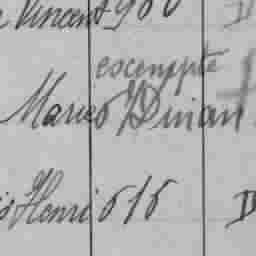 Vincent 980 D
escempté
Marie 6 Dinan
Henri 616 D